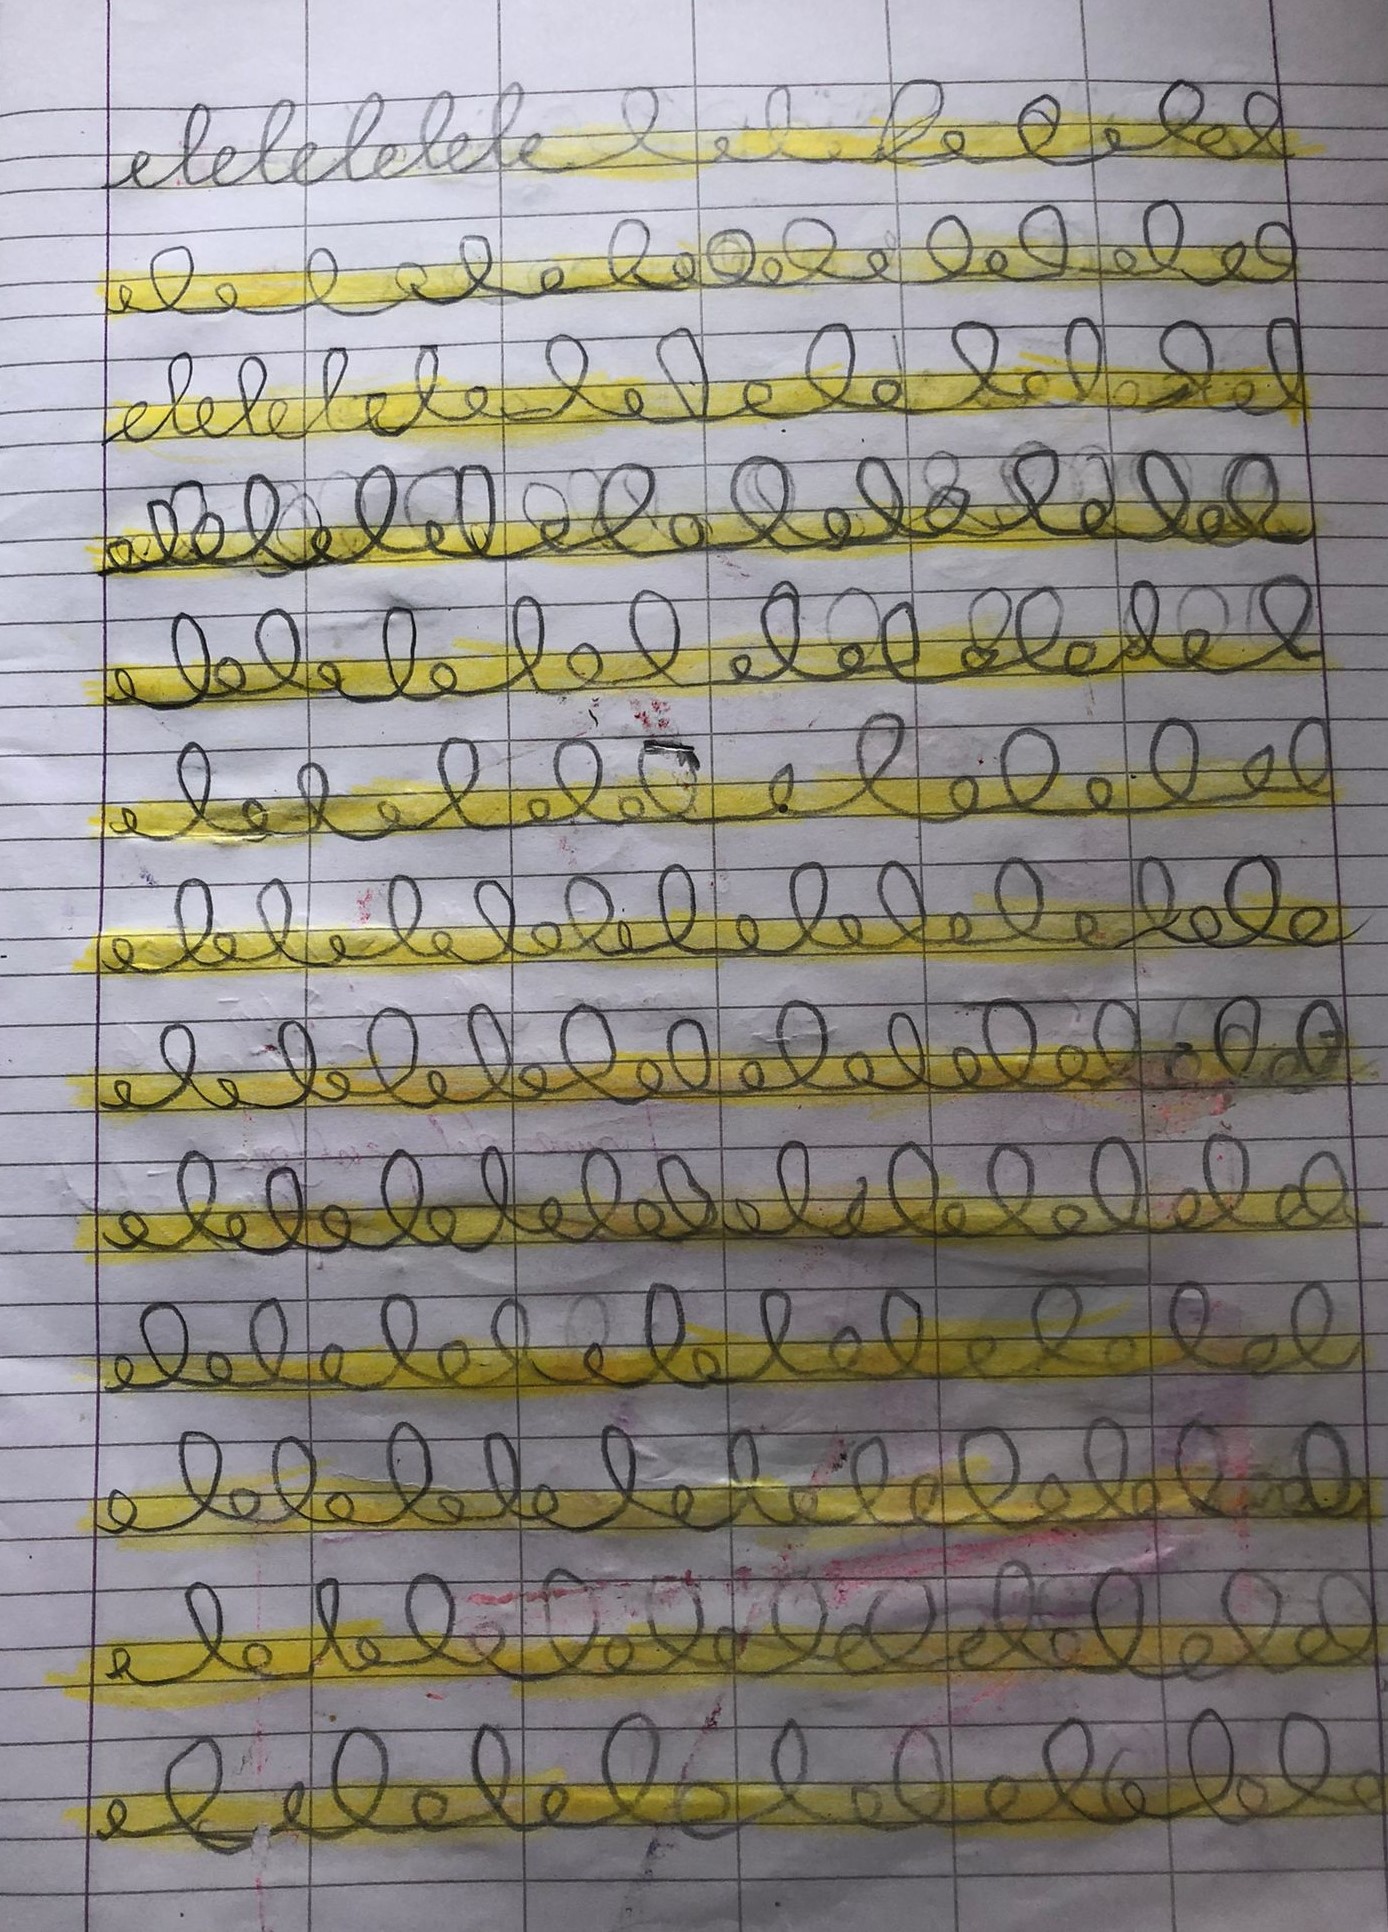 elelelelele l el le e elel
elel elelelelelelel
elelelelelelelelelelel
elelelelelelelelelelel
elelelelelelelelelelel
elelelelelelelelelel
elelelelelelelelelelele
elelelelelelelelelelelel
elelelelelelelelelelelel
elelelelelelelelelelel
elelelelelelelelelelelel
elelelelelelelelelelel
elelelelelelelelele